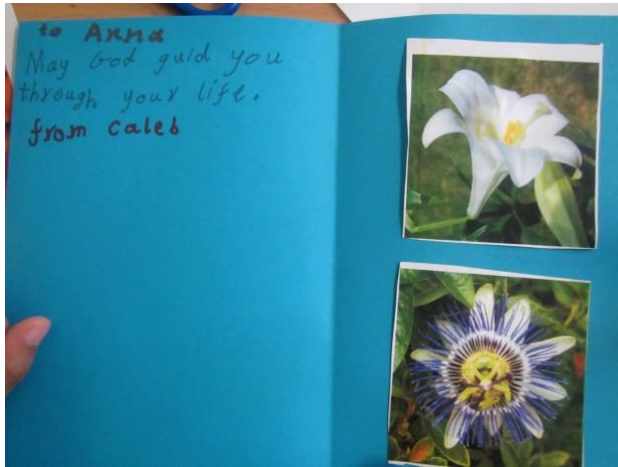 to Anna
May God guid you
through your life.
from caleb